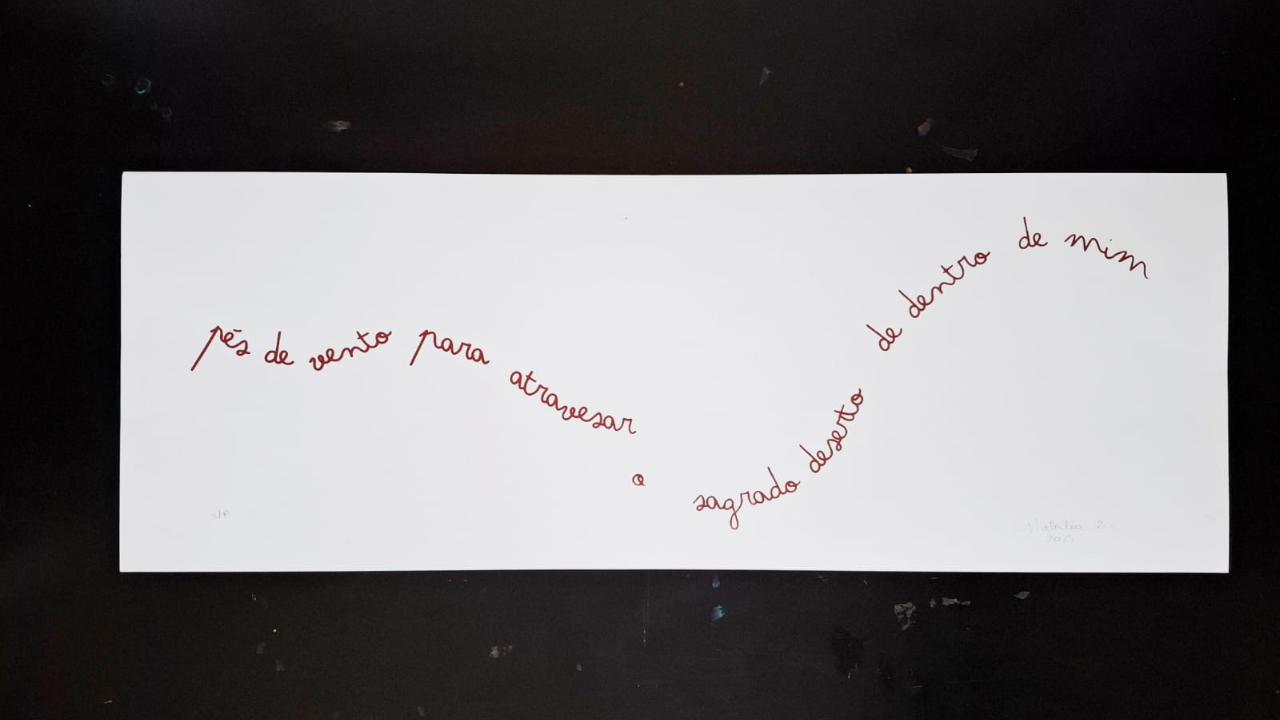 pés de vento para atravesar o sagrado deserto de dentro de mim